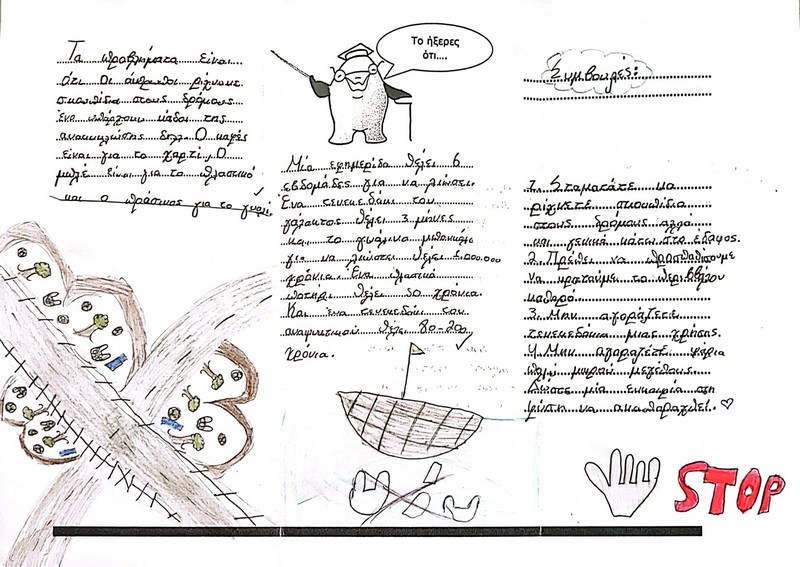 Τα προβλήματα είναι
ότι οι άνθρωποι ρίχνουν
σκουπίδια στους δρόμους
ενώ υπάρχουν κάδοι της
ανακύκλωσης δηλ. Ο καφές
είναι για το χαρτί, Ο
μπλέ είναι για το πλαστικό
και ο πράσινος για το γυαλί
Το ήξερες
ότι....
Μία εφημερίδα θέλει 6
εβδομάδες για να λιώσει
Ένα τενεκεδάκι του
γάλακτος θέλει 3 μήνες
και το γυάλινο μπουκάλι
για να λιώσει θέλει 1.000.000
χρόνια. Ένα πλαστικό
ποτήρι θέλει 50 χρόνια.
Και ένα τενεκεδάκι του
αναψυκτικού θέλει 80-200
χρόνια.
Συμβουλές:
1. Σταματάτε να
ρίχνετε σκουπίδια
στους δρόμους αλλά
και γενικά κάτω στο έδαφος.
2. Πρέπει να προσπαθήσουμε
να κρατούμε το περιβάλλον
καθαρό.
3. Μην αγοράζετε
τενεκεδάκια μιας χρήσης.
4. Μην αγοράζετε ψάρια
πολύ μικρού μεγέθους.
Δώστε μία ευκαιρία στη
φύση να αναπαραχθεί.
STOP